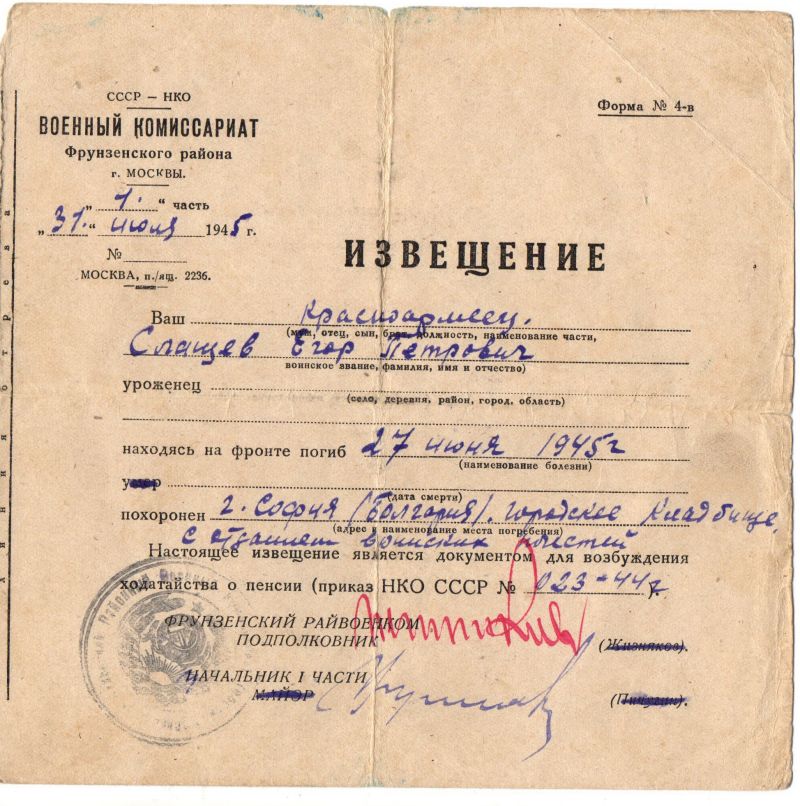 СССР — НКО
ВОЕННЫЙ КОМИССАРИАТ
Фрунзенского района
г. МОСКВЫ.
„ 1. “ часть
„31.“ июля 1945 г.
№
МОСКВА, п./ящ. 2236.
Форма № 4-в
ИЗВЕЩЕНИЕ
Ваш красноармеец.
(муж, отец, сын, брат, должность, наименование части,
Слащев Егор Петрович
воинское звание, фамилия, имя и отчество)
уроженец
(село, деревня, район, город, область)
находясь на фронте погиб 27 июня 1945г
(наименование болезни)
умер
(дата смерти)
похоронен г. София (Болгария). городское кладбище,
(адрес и наименование места погребения)
с отданием воинских почестей
Настоящее извещение является документом для возбуждения
ходатайства о пенсии (приказ НКО СССР № 023-44г
ФРУНЗЕНСКИЙ РАЙВОЕНКОМ
ПОДПОЛКОВНИК (Жизняков).
НАЧАЛЬНИК I ЧАСТИ
МАЙОР (Пичугин).
линия отреза